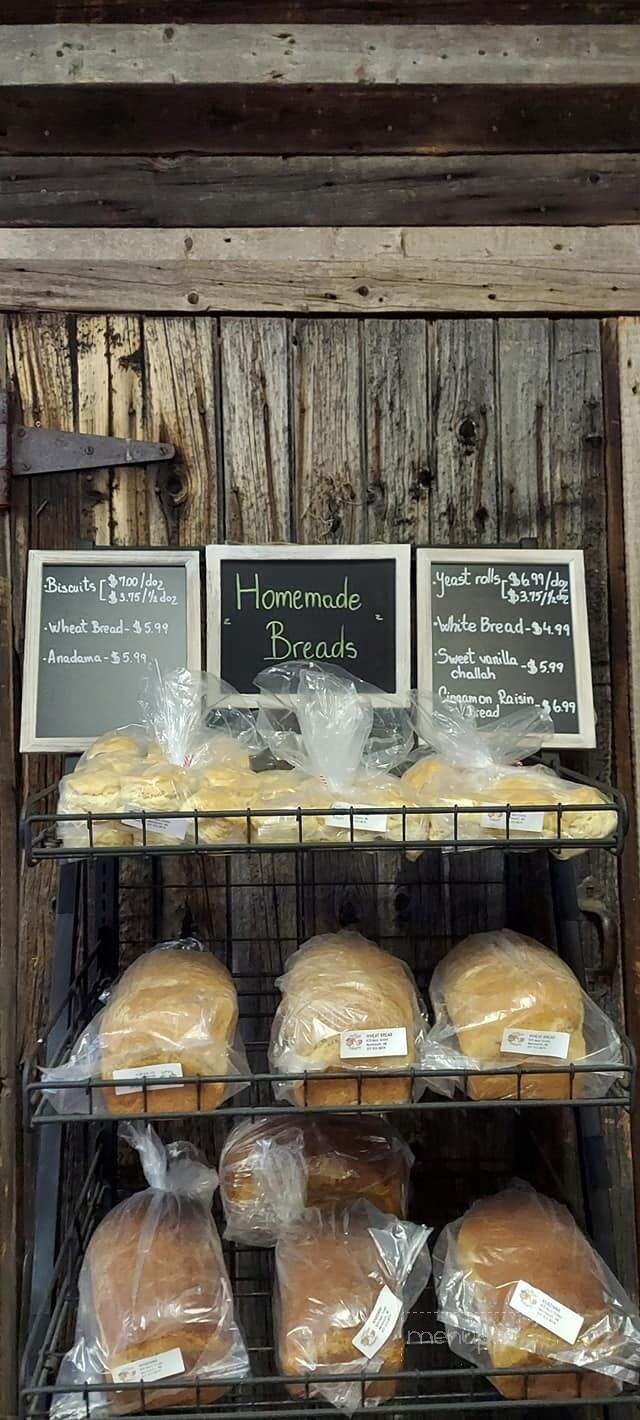 Biscuits [$7.00/doz
$3.75/½ doz
·Wheat Bread-$5.99
·Anadama-$5.99
Homemade
Breads
·Yeast rolls[-$6.99/doz
$3.75/½doz
·White Bread-$4.99
·Sweet vanilla -$5.99
challah
Cinnamon Raisin -$6.99
Bread
WHEAT BREAD
WHEAT BREAD
ANADAMA
menu